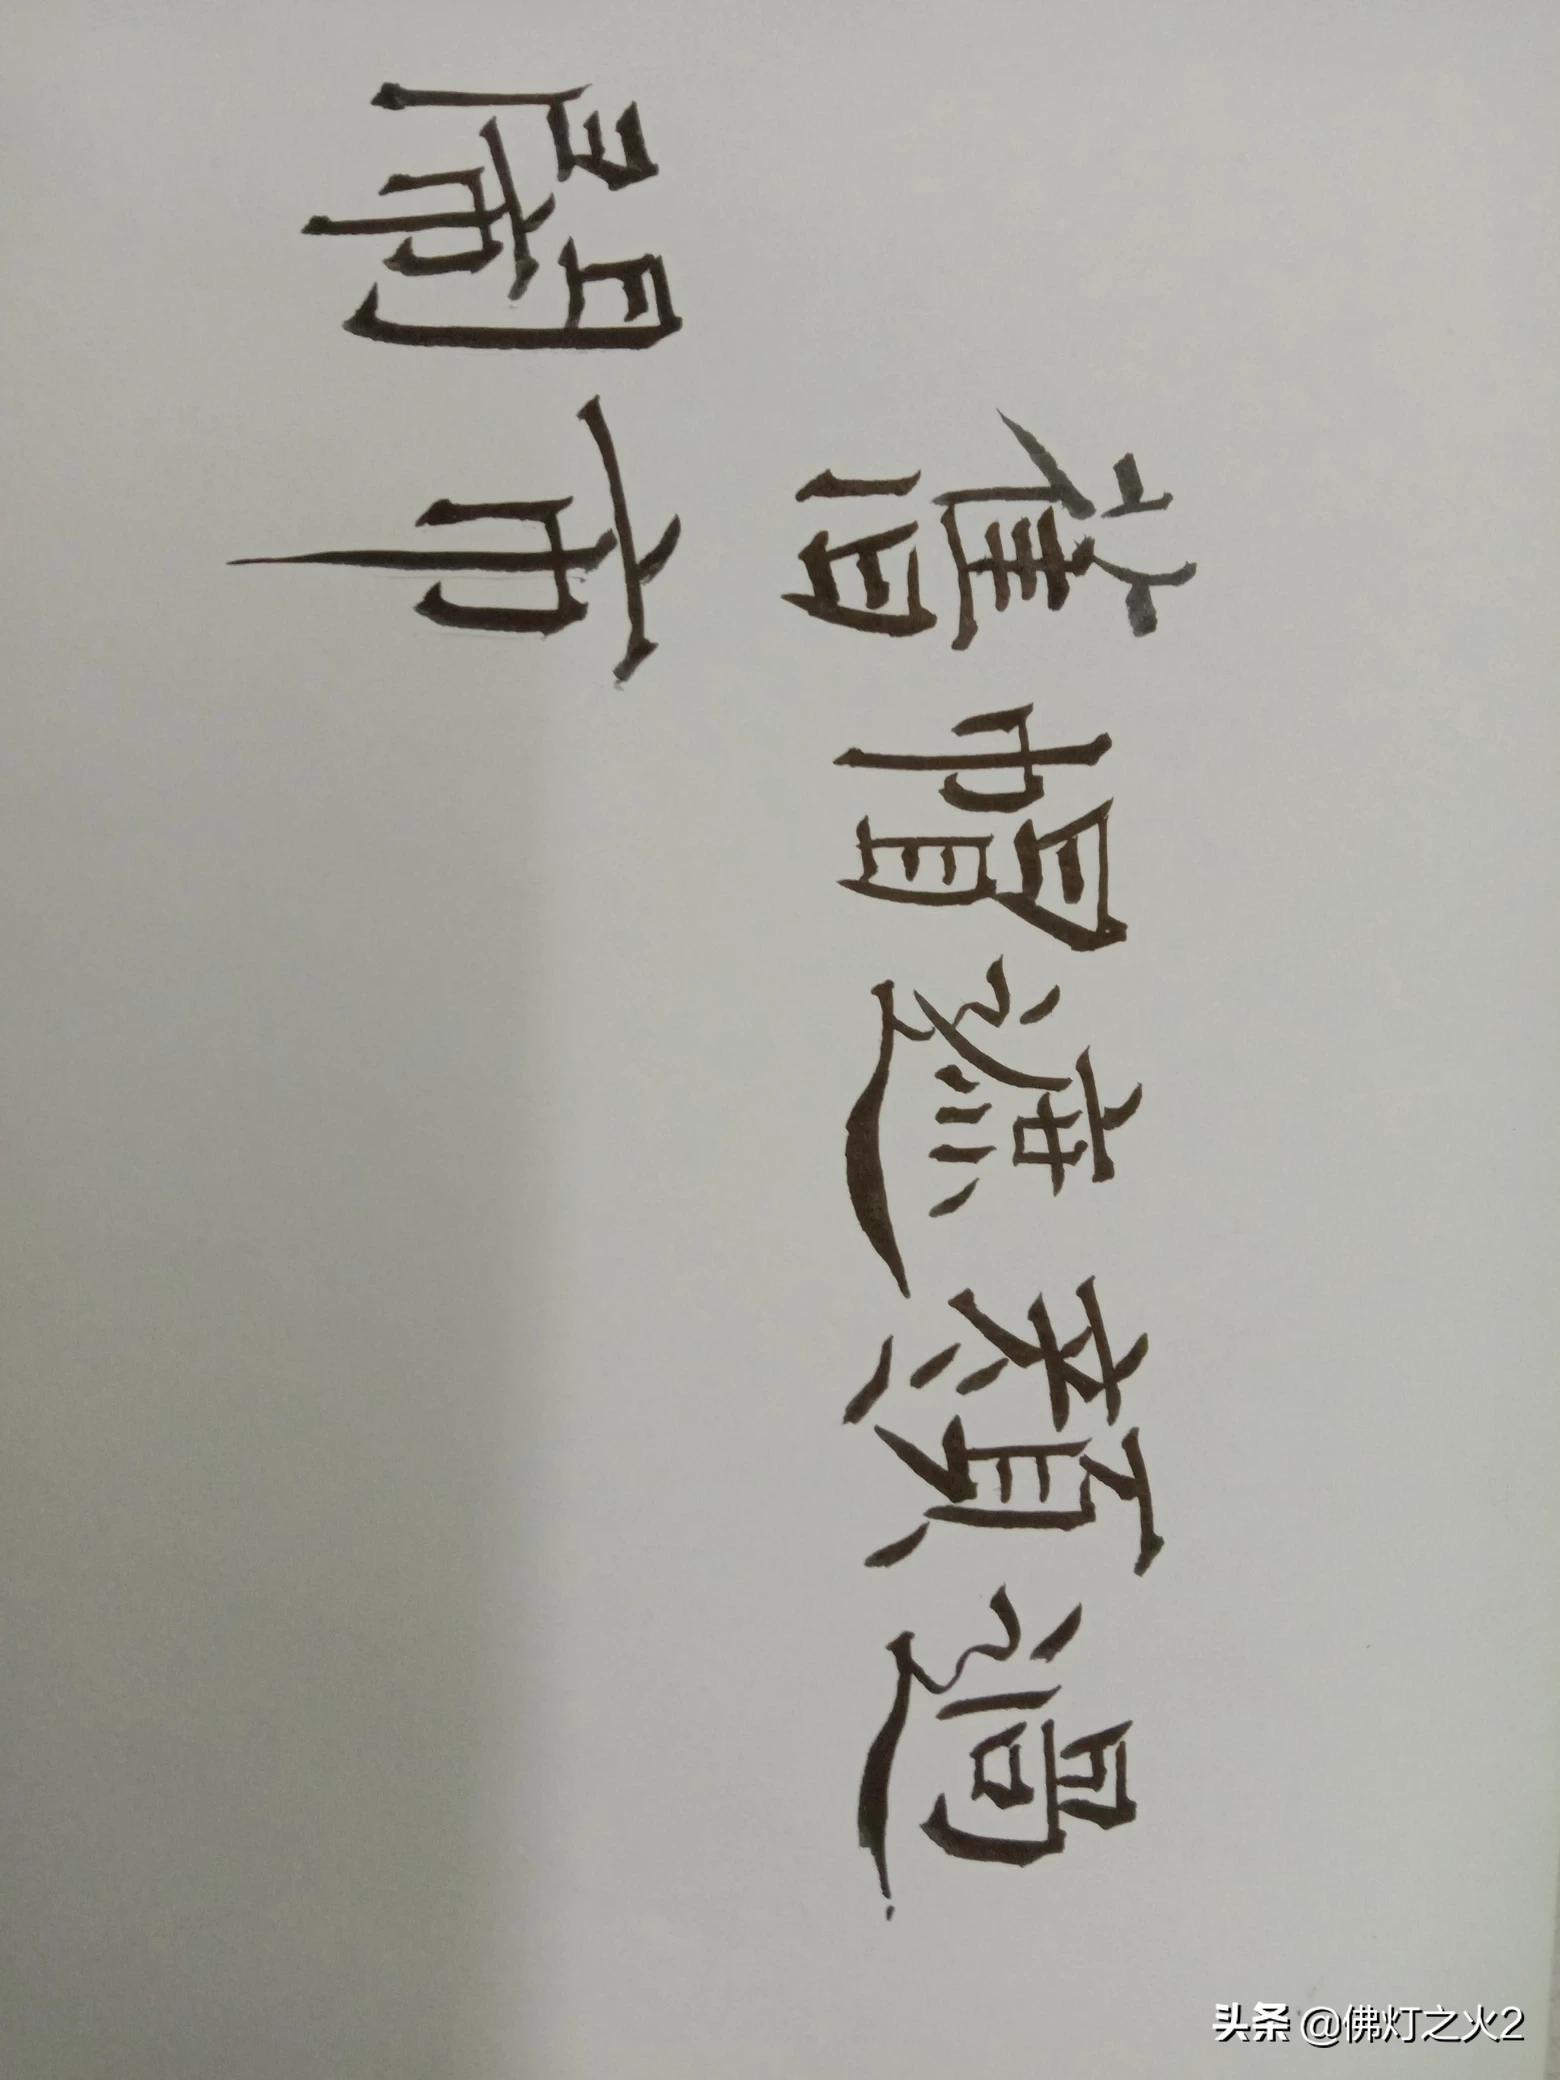 舊帽遮顏過
閙市
头条 @佛灯之火2